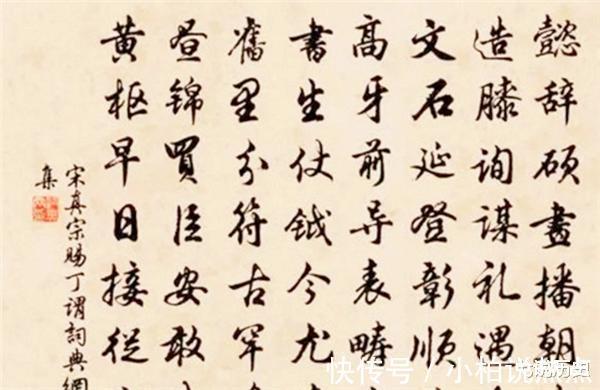 懿辞硕畫播朝
造膝询谋礼遇
文石延登彰顺
高牙前导表畴
書生仗钺今尤
舊里分符古罕
昼锦買臣安敢
黄枢早日接從
宋真宗賜丁謂詞典網
集
快传号/小柏说